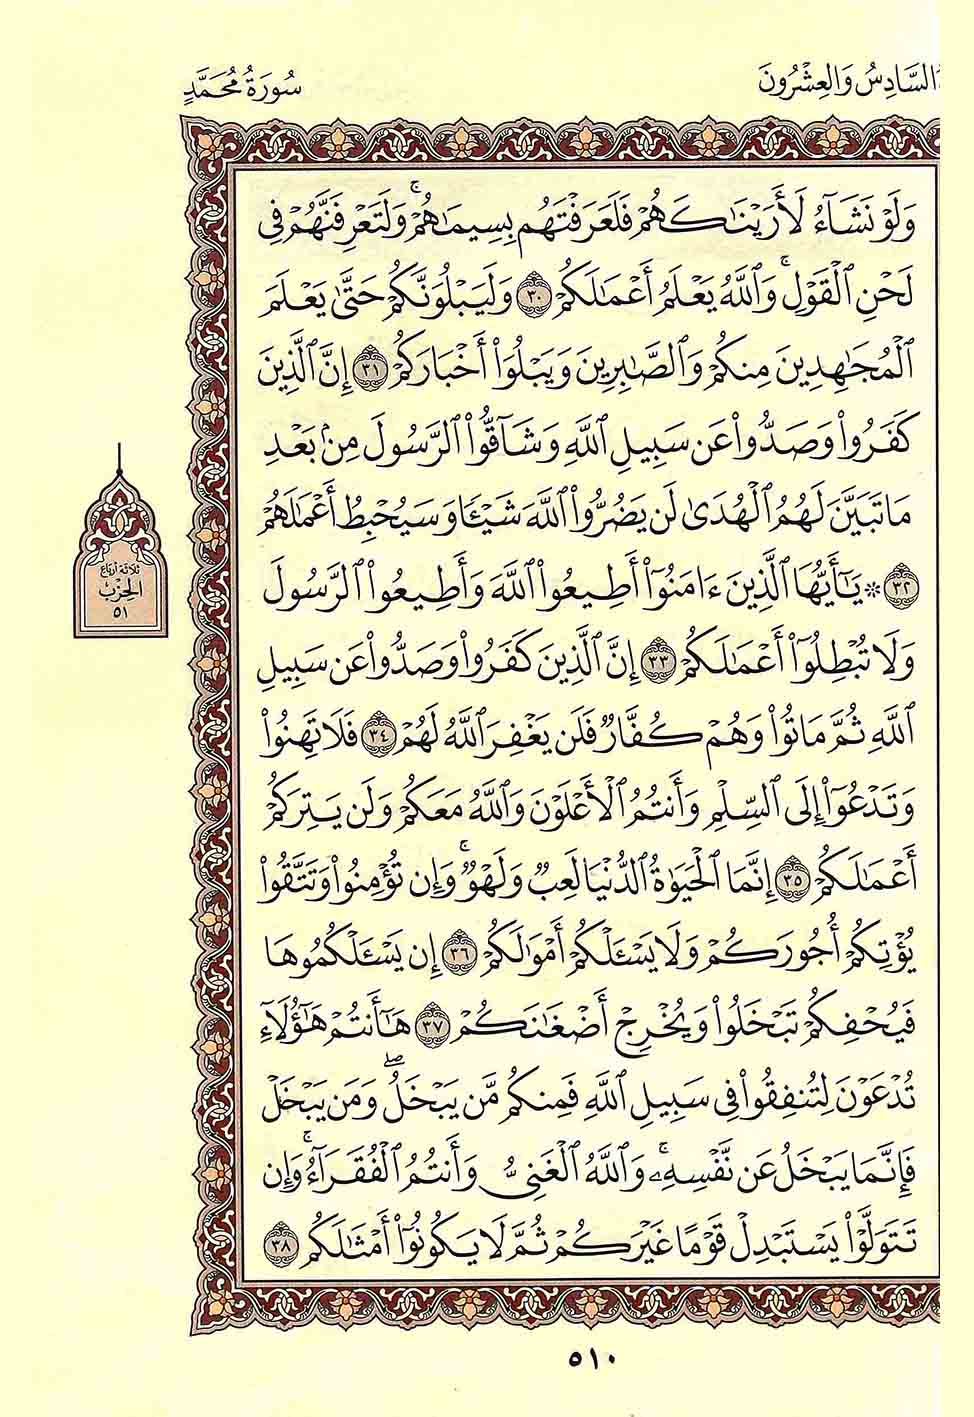 السَّادِسُ وَالعِشْرُونَ
سُورَةُ مُحَمَّدٍ
وَلَوْ نَشَآءُ لَأَرَيْنَٰكَهُمْ فَلَعَرَفْتَهُم بِسِيمَٰهُمْۚ وَلَتَعْرِفَنَّهُمْ فِى
لَحْنِ ٱلْقَوْلِۚ وَٱللَّهُ يَعْلَمُ أَعْمَٰلَكُمْ ٣٠ وَلَيَبْلُوَنَّكُمْ حَتَّىٰ يَعْلَمَ
ٱلْمُجَٰهِدِينَ مِنكُمْ وَٱلصَّٰبِرِينَ وَيَبْلُوَا۟ أَخْبَارَكُمْ ٣١ إِنَّ ٱلَّذِينَ
كَفَرُوا۟ وَصَدُّوا۟ عَن سَبِيلِ ٱللَّهِ وَشَآقُّوا۟ ٱلرَّسُولَ مِنۢ بَعْدِ
مَا تَبَيَّنَ لَهُمُ ٱلْهُدَىٰ لَن يَضُرُّوا۟ ٱللَّهَ شَيْـًٔا وَسَيُحْبِطُ أَعْمَٰلَهُمْ
٣٢ ۞ يَٰٓأَيُّهَا ٱلَّذِينَ ءَامَنُوٓا۟ أَطِيعُوا۟ ٱللَّهَ وَأَطِيعُوا۟ ٱلرَّسُولَ
وَلَا تُبْطِلُوٓا۟ أَعْمَٰلَكُمْ ٣٣ إِنَّ ٱلَّذِينَ كَفَرُوا۟ وَصَدُّوا۟ عَن سَبِيلِ
ٱللَّهِ ثُمَّ مَاتُوا۟ وَهُمْ كُفَّارٌ فَلَن يَغْفِرَ ٱللَّهُ لَهُمْ ٣٤ فَلَا تَهِنُوا۟
وَتَدْعُوٓا۟ إِلَى ٱلسِّلْمِ وَأَنتُمُ ٱلْأَعْلَوْنَ وَٱللَّهُ مَعَكُمْ وَلَن يَتِرَكُمْ
أَعْمَٰلَكُمْ ٣٥ إِنَّمَا ٱلْحَيَوٰةُ ٱلدُّنْيَا لَعِبٌ وَلَهْوٌۚ وَإِن تُؤْمِنُوا۟ وَتَتَّقُوا۟
يُؤْتِكُمْ أُجُورَكُمْ وَلَا يَسْـَٔلْكُمْ أَمْوَٰلَكُمْ ٣٦ إِن يَسْـَٔلْكُمُوهَا
فَيُحْفِكُمْ تَبْخَلُوا۟ وَيُخْرِجْ أَضْغَٰنَكُمْ ٣٧ هَٰٓأَنتُمْ هَٰٓؤُلَآءِ
تُدْعَوْنَ لِتُنفِقُوا۟ فِى سَبِيلِ ٱللَّهِ فَمِنكُم مَّن يَبْخَلُۖ وَمَن يَبْخَلْ
فَإِنَّمَا يَبْخَلُ عَن نَّفْسِهِۦۚ وَٱللَّهُ ٱلْغَنِىُّ وَأَنتُمُ ٱلْفُقَرَآءُۚ وَإِن
تَتَوَلَّوْا۟ يَسْتَبْدِلْ قَوْمًا غَيْرَكُمْ ثُمَّ لَا يَكُونُوٓا۟ أَمْثَٰلَكُم ٣٨
ثلاثة أرباع
الحِزْبُ
٥١
٥١٠